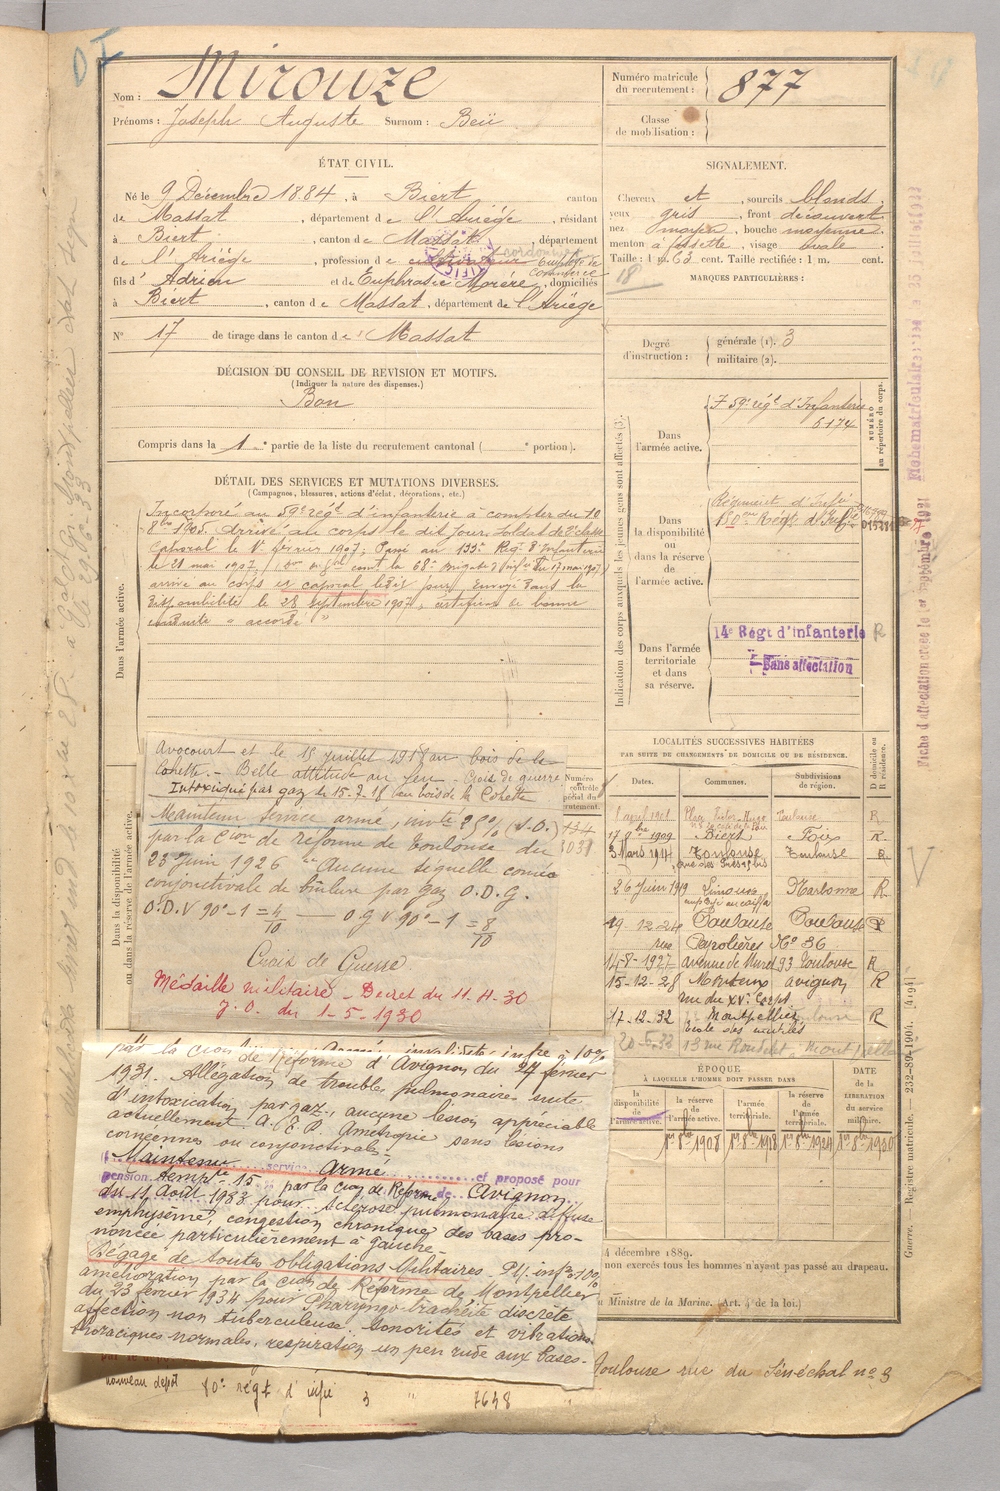 Nom : Mirouze
Prénoms : Joseph Auguste Surnom : Beü
Numéro matricule du recrutement : 877
Classe de mobilisation :
ÉTAT CIVIL.
Né le 9 Décembre 1884, à Biert canton
de Massat, département de l'Ariège, résidant
à Biert, canton de Massat, département
de l'Ariège, profession de cultivateur cordonnier Employé de commerce
fils d'Adrien et de Euphrasie Moréré, domiciliés
à Biert, canton de Massat, département de l'Ariège
N° 17 de tirage dans le canton de Massat
SIGNALEMENT.
Cheveux et, sourcils blonds,
yeux gris, front découvert
nez moyen, bouche moyenne,
menton à fossette, visage ovale.
Taille : 1 m. 63 cent. Taille rectifiée : 1 m. cent.
18
MARQUES PARTICULIÈRES :
Degré d'instruction : générale (1). 3
militaire (2).
DÉCISION DU CONSEIL DE REVISION ET MOTIFS.
(Indiquer la nature des dispenses.)
Bon
Compris dans la 1e partie de la liste du recrutement cantonal ( e portion).
DÉTAIL DES SERVICES ET MUTATIONS DIVERSES.
(Campagnes, blessures, actions d'éclat, décorations, etc.)
Dans l'armée active.
Incorporé au 59e régt d'infanterie à compter du 10
8bre 1905. Arrivé au corps le dit jour, soldat de 2e classe
Caporal le 1er février 1907; Passé au 133e Régt d'Infanterie
le 21 mai 1907
arrivé au corps et caporal le dit jour. Envoyé dans la
disponibilité le 28 septembre 1907, certificat de bonne
conduite "accordé"
Indication des corps auxquels les jeunes gens sont affectés (3).
Dans l'armée active.
59e régt d'Infanterie
6174
NUMÉRO au répertoire du corps.
Dans la disponibilité ou dans la réserve de l'armée active.
Régiment d'Infie
Dans l'armée territoriale et dans sa réserve.
14e Régt d'infanterie R
Sans affectation
Dans la disponibilité ou dans la réserve de l'armée active.
Avocourt et le 15 juillet 1918 au bois de la
Cohette. - Belle attitude au feu - Croix de guerre
Intoxiqué par gaz le 15-7-18 (au bois de la Cohette
Maintenu service armé, inv.té 25% (S.O.)
par la Cion de réforme de Toulouse du
23 Juin 1926 "Aucune séquelle cornéo
conjonctivale de brûlure par gaz O.D.G.
O.D.V 90°-1 = 4/10 — O.G V 90°-1 = 8/10
Croix de Guerre
Médaille militaire - Décret du 11-4-30
J.O. du 1-5-1930
LOCALITÉS SUCCESSIVES HABITÉES
PAR SUITE DE CHANGEMENTS DE DOMICILE OU DE RÉSIDENCE.
Dates. Communes. Subdivisions de région. D domicile ou R résidence.
17 8bre 1909 Biert Foix R.
3 Mars 1911 Toulouse Toulouse R.
26 Juin 1919 Limoux Narbonne R
19-12-24 Toulouse Toulouse
rue Capolières No 36
14-8-1927 avenue de Muret 93 Toulouse R
15-12-28 Monteux avignon R
rue du XVe Corps
17-12-32 Montpellier R
Ecole des mutilés
ÉPOQUE
À LAQUELLE L'HOMME DOIT PASSER DANS
la disponibilité de l'armée active. la réserve de l'armée active. l'armée territoriale. la réserve de l'armée territoriale. DATE de la LIBÉRATION du service militaire.
1er 8bre 1908 1er 8bre 1918 1er 8bre 1924 1er 8bre 1930
par la cion de Réforme d'Avignon du 27 février
1931. Allégation de trouble pulmonaire suite
d'intoxication par gaz, aucune lésion appréciable
actuellement. A.E.P. Amétropie sans lésions
cornéennes ou conjonctivales.
Maintenu service Armé et proposé pour
pension temp.re 15 par la Cion de Réforme de Avignon
du 11 Août 1933 pour sclérose pulmonaire diffuse
emphysème, congestion chronique des bases pro-
noncée particulièrement à gauche.
Dégagé de toutes obligations Militaires - P.I. inf. à 10%
amélioration par la Cion de Réforme de Montpellier
du 23 février 1934 pour Pharyngo-trachéite discrète
affection non tuberculeuse. Sonorités et vibrations
thoraciques normales, respiration un peu rude aux bases.
4 décembre 1889.
non exercés tous les hommes n'ayant pas passé au drapeau.
Ministre de la Marine. (Art. 4 de la loi.)
Toulouse rue du Sénéchal no 3
nouveau dépôt 80e régt d'infie 3 " 7658
Guerre. Registre matricule. 232-89-1904. [4194]
Fiche d'affectation créée le 1er septembre 1921